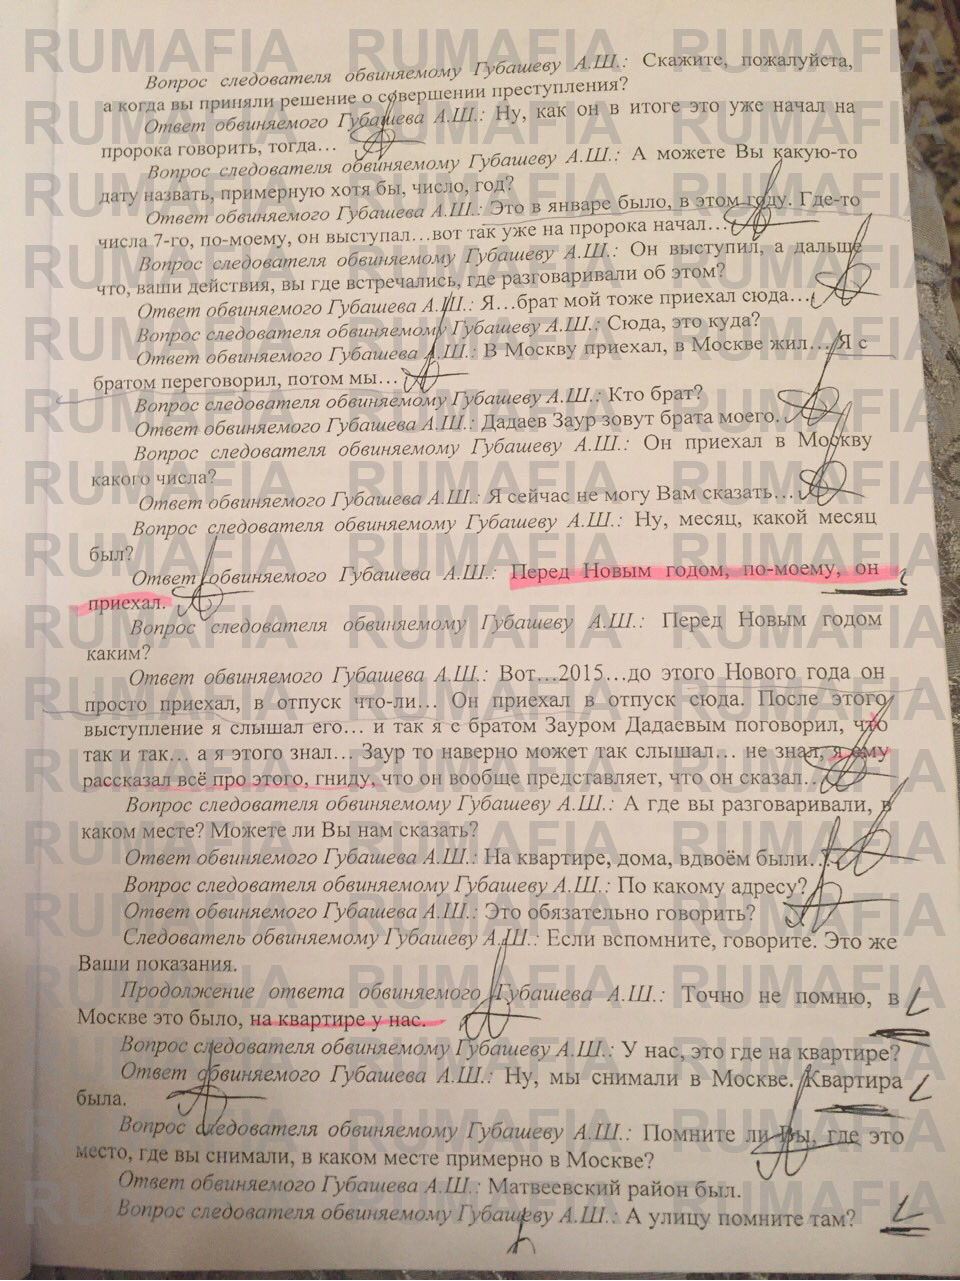 Вопрос следователя обвиняемому Губашеву А.Ш.: Скажите, пожалуйста,
а когда вы приняли решение о совершении преступления?
Ответ обвиняемого Губашева А.Ш.: Ну, как он в итоге это уже начал на
пророка говорить, тогда…
Вопрос следователя обвиняемому Губашеву А.Ш.: А можете Вы какую-то
дату назвать, примерную хотя бы, число, год?
Ответ обвиняемого Губашева А.Ш.: Это в январе было, в этом году. Где-то
числа 7-го, по-моему, он выступал…вот так уже на пророка начал…
Вопрос следователя обвиняемому Губашеву А.Ш.: Он выступил, а дальше
что, ваши действия, вы где встречались, где разговаривали об этом?
Ответ обвиняемого Губашева А.Ш.: Я…брат мой тоже приехал сюда…
Вопрос следователя обвиняемому Губашеву А.Ш.: Сюда, это куда?
Ответ обвиняемого Губашева А.Ш.: В Москву приехал, в Москве жил… Я с
братом переговорил, потом мы…
Вопрос следователя обвиняемому Губашеву А.Ш.: Кто брат?
Ответ обвиняемого Губашева А.Ш.: Дадаев Заур зовут брата моего.
Вопрос следователя обвиняемому Губашеву А.Ш.: Он приехал в Москву
какого числа?
Ответ обвиняемого Губашева А.Ш.: Я сейчас не могу Вам сказать…
Вопрос следователя обвиняемому Губашеву А.Ш.: Ну, месяц, какой месяц
был?
Ответ обвиняемого Губашева А.Ш.: Перед Новым годом, по-моему, он
приехал.
Вопрос следователя обвиняемому Губашеву А.Ш.: Перед Новым годом
каким?
Ответ обвиняемого Губашева А.Ш.: Вот…2015…до этого Нового года он
просто приехал, в отпуск что-ли… Он приехал в отпуск сюда. После этого
выступление я слышал его… и так я с братом Зауром Дадаевым поговорил, что
так и так… а я этого знал… Заур то наверно может так слышал… не знал, я ему
рассказал всё про этого, гниду, что он вообще представляет, что он сказал…
Вопрос следователя обвиняемому Губашеву А.Ш.: А где вы разговаривали, в
каком месте? Можете ли Вы нам сказать?
Ответ обвиняемого Губашева А.Ш.: На квартире, дома, вдвоём были…
Вопрос следователя обвиняемому Губашеву А.Ш.: По какому адресу?
Ответ обвиняемого Губашева А.Ш.: Это обязательно говорить?
Следователь обвиняемому Губашеву А.Ш.: Если вспомните, говорите. Это же
Ваши показания.
Продолжение ответа обвиняемого Губашева А.Ш.: Точно не помню, в
Москве это было, на квартире у нас.
Вопрос следователя обвиняемому Губашеву А.Ш.: У нас, это где на квартире?
Ответ обвиняемого Губашева А.Ш.: Ну, мы снимали в Москве. Квартира
была.
Вопрос следователя обвиняемому Губашеву А.Ш.: Помните ли Вы, где это
место, где вы снимали, в каком месте примерно в Москве?
Ответ обвиняемого Губашева А.Ш.: Матвеевский район был.
Вопрос следователя обвиняемому Губашеву А.Ш.: А улицу помните там?
RUMAFIA